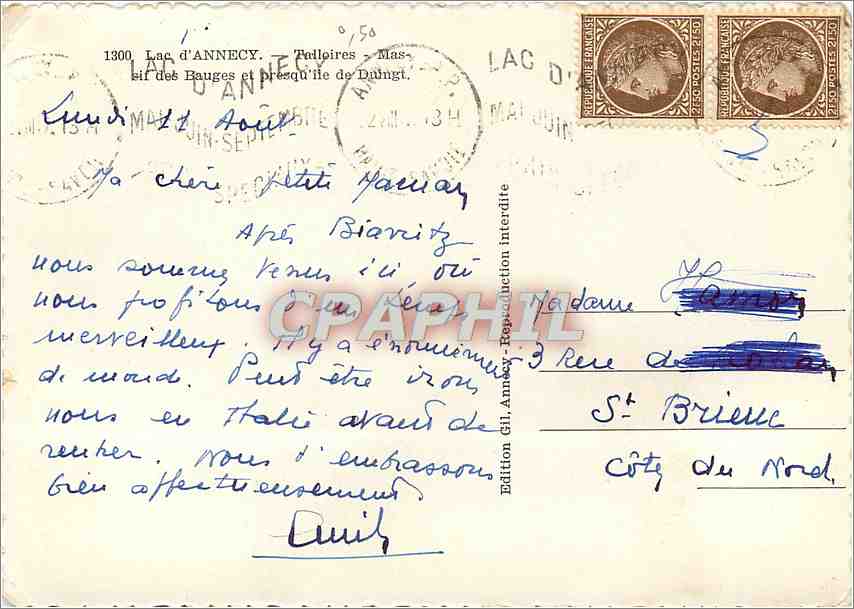 0,50
1300 Lac d'ANNECY. – Talloires – Mas-
sif des Bauges et presqu'île de Duingt.
LAC
D'ANNECY
LAC
D'A
13 H
13 H
REPUBLIQUE FRANÇAISE
2F.50 POSTES 2F.50
REPUBLIQUE FRANÇAISE
2F.50 POSTES 2F.50
Lundi 11 Août
Ma chère petite Maman
Après Biarritz
nous sommes venus ici où
nous profitons d'un temps
merveilleux. Il y a énormément
de monde. Peut être irons
nous en Italie avant de
rentrer. Nous t'embrassons
bien affectueusement
Edition Gil, Annecy - Reproduction interdite
CPAPHIL
Madame
3 Rue de
St Brieuc
Côtes du Nord.